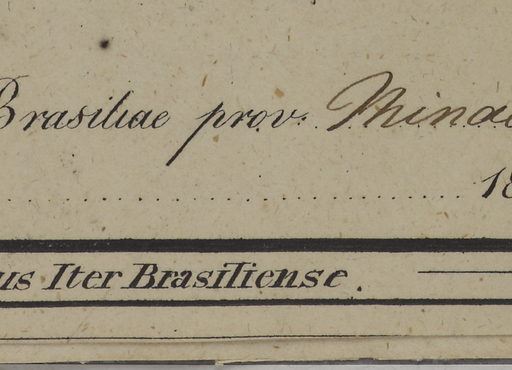 Brasiliae prov. Minas
18
us Iter Brasiliense.